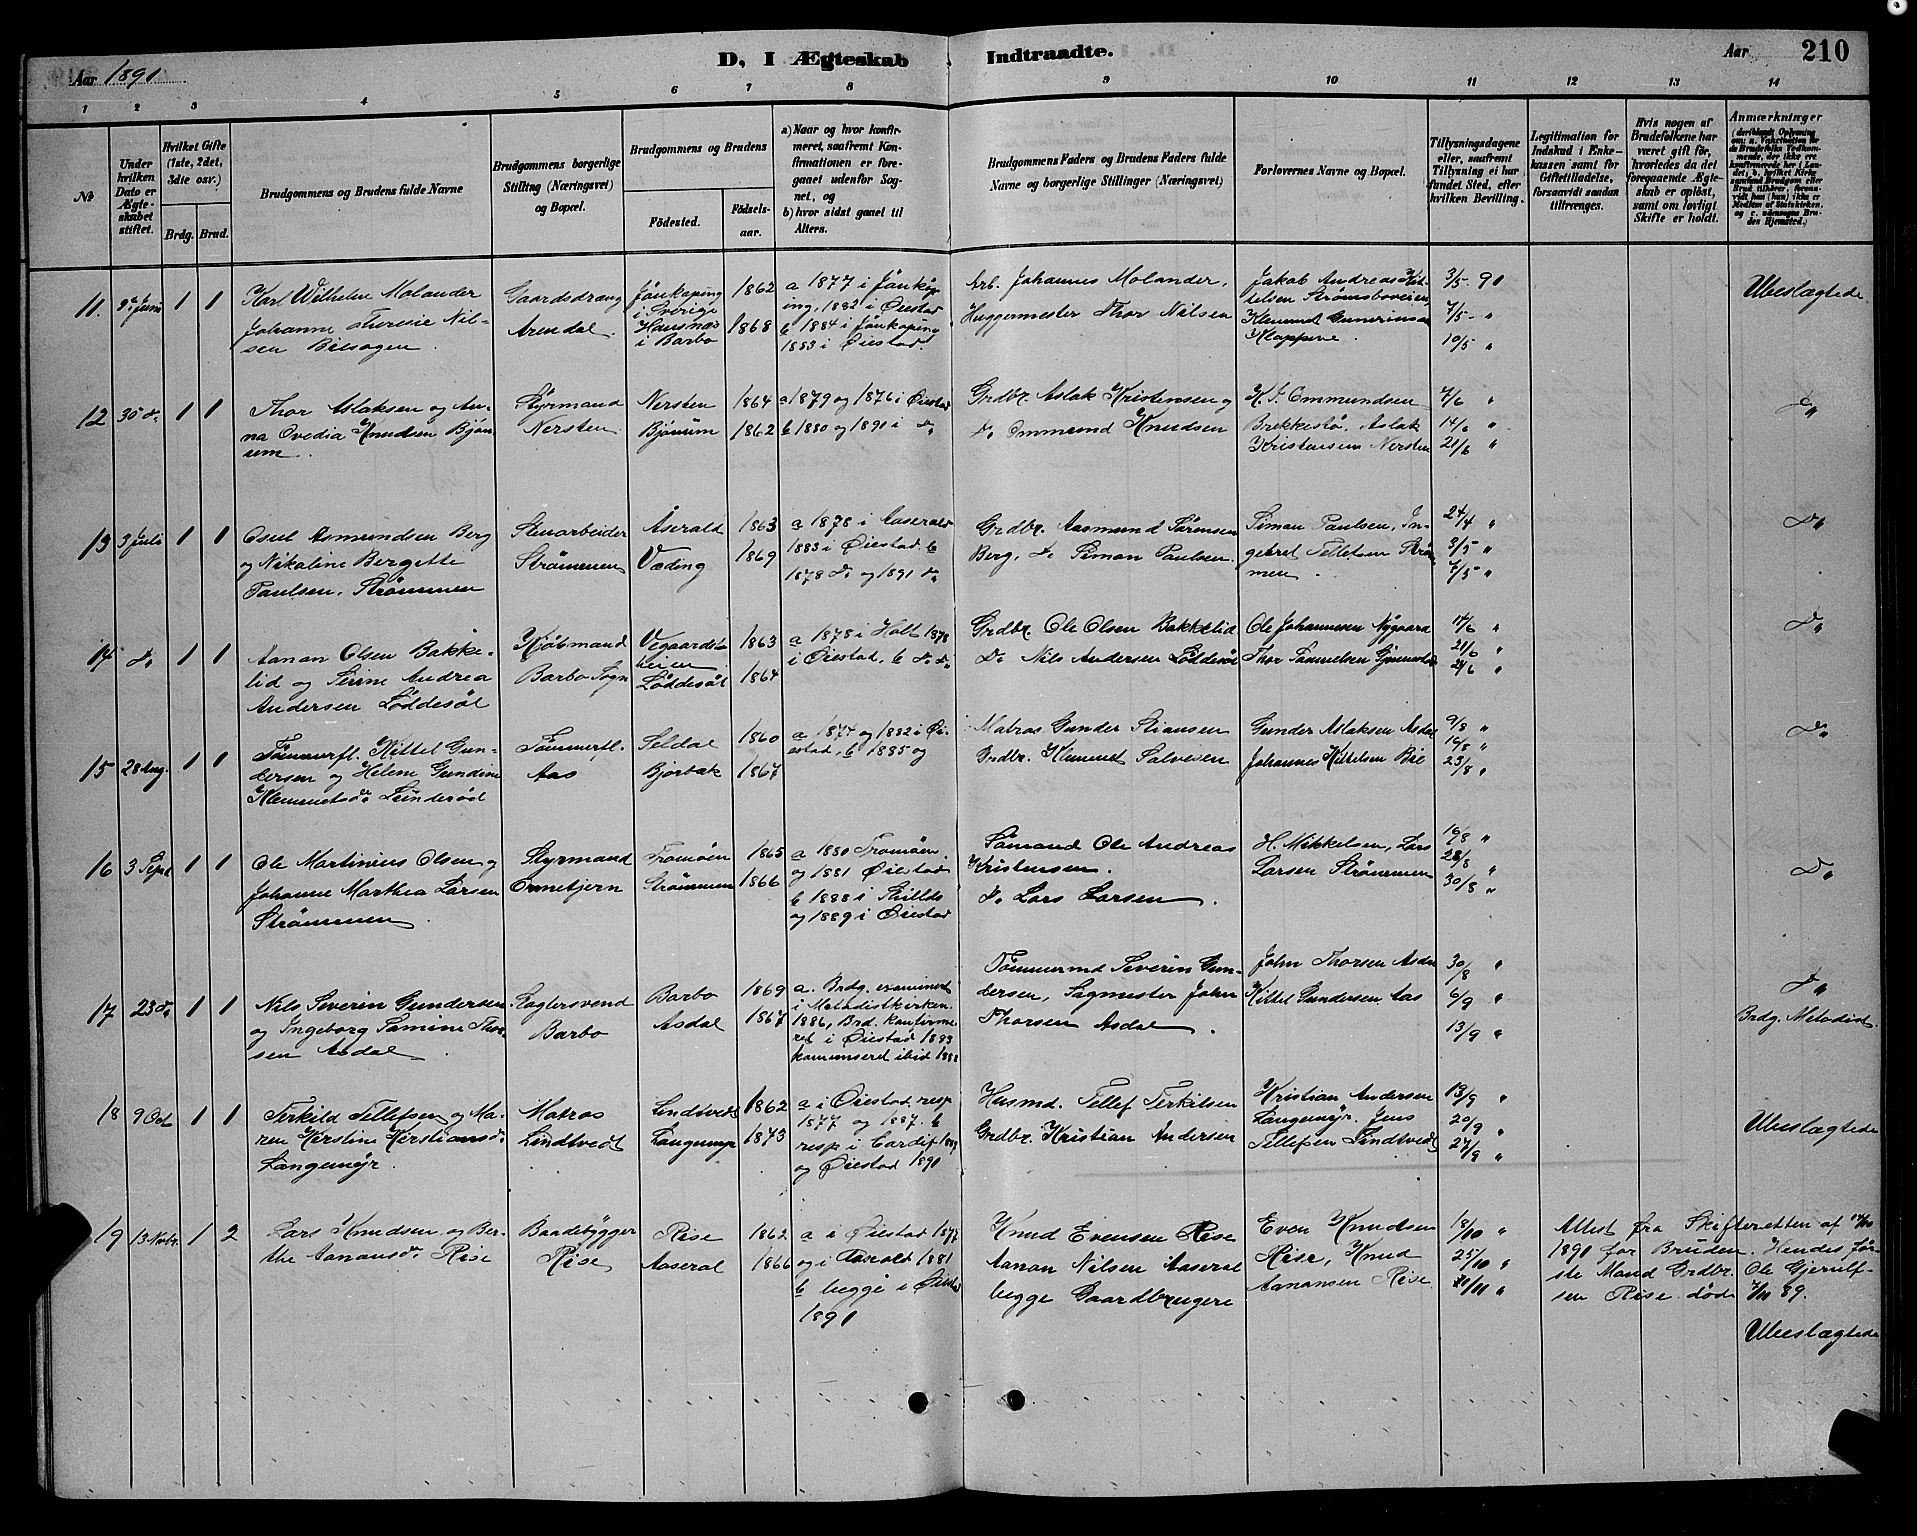 Aar 1891
D, I Ægteskab Indtraadte.
Aar 210
1 2 3 4 5 6 7 8 9 10 11 12 13 14
№
Under hvilken Dato er Ægteskabet stiftet.
Hvilket Gifte (1ste, 2det, 3die osv.)
Brdg. Brud.
Brudgommens og Brudens fulde Navne
Brudgommens borgerlige Stilling (Næringsvei) og Bopæl.
Brudgommens og Brudens
Födested. Födselsaar.
a) Naar og hvor konfirmeret, saafremt Konfirmationen er foregaaet udenfor Sognet, og
b) hvor sidst gaaet til Alters.
Brudgommens Faders og Brudens Faders fulde Navne og borgerlige Stillinger (Næringsvei)
Forlovernes Navne og Bopæl.
Tillysningsdagene eller, saafremt Tillysning ei har fundet Sted, efter hvilken Bevilling.
Legitimation for Indskud i Enkekassen samt for Giftetilladelse, forsaavidt saadan tiltrænges.
Hvis nogen af Brudefolkene har været gift før, hvorledes da det foregaaende Ægteskab er opløst, samt om lovligt Skifte er holdt.
Anmærkninger
11. 9de Juni 1 1
Karl Wilhelm Molander
Johanne Theresie Nilsen Bilsogen
Gaardsdræng
Arendal
Jönkøping i Sverige 1862
i Barbo 1868
a 1877 i Jönköping, 1882 i Øiestad
b 1884 i Jönkøping
1883 i Øiestad
Arb. Johannes Molander,
Huggermester Thor Nilsen
Jakob Andreas Kittelsen Strømsboveien
Klemmet Gunerius
3/5 - 91
7/5 - "
10/5 "
Ubeslægtede
12 30 do 1 1
Thor Aslaksen og Anna Ovedia Knudsen Bjørum
Styrmand
Nersten
Nersten 1864
Bjørum 1862
a 1879 og 1876 i Øiestad
b 1880 og 1891 i do
Grdbr. Aslak Kristensen og
do Ommund Knudsen
K. J. Ommundsen
Brekkestø, Aslak
Kristensen Nersten
7/6 "
14/6 "
21/6 "
do
13 3 Juli 1 1
Osul Asmundsen Berg
og Nikoline Bergette
Paulsen, Strømmen
Stenarbeider
Strømmen
Åserald 1863
Væding 1869
a 1878 i Aaserald
1883 i Øiestad. b
1878 do og 1891 do
Grdbr. Aasmund Sørensen
Berg, do Simon Paulsen
Simon Paulsen, Ingebret Tellefsen Strømmen
24/4 "
3/5 "
7/5 "
do
14 do 1 1
Aanon Olsen Bakkelid og Serine Andrea
Andersen Løddesøl
Kjøbmand
Barbo Sogn
Vegaardsheien 1863
Løddesøl 1864
a 1878 i Holt 1878
i Øiestad, b do do
Grdbr. Ole Olsen Bakkelid
do Nils Andersen Løddesøl
Ole Johannesen Nygaard
Thor Samuelsen
14/6 "
21/6 "
24/6 "
do
15 28 Aug. 1 1
Tømmerfl. Kittel Gundersen og Helene Gundine
Klemmetsdr Lunderød
Tømmerfl.
Aas
Seldal 1860
Bjorbæk 1867
a 1874 og 1882 i Øiestad, b 1885 og
Matros Gunder Stiansen
Grdbr. Klemmet Salvesen
Gunder Aslaksen Asdal
Johannes Kittelsen Bie
9/8 "
16/8 "
23/8 "
do
16 3 Sept 1 1
Ole Martinius Olsen og
Johanne Marthea Larsen
Strømmen
Styrmand
Ormetjern
Tromøen 1865
Strømmen 1866
a 1880 Tromøen
og 1881 Øiestad
b 1888 i Skilds
og 1889 i Øiestad
Sømand Ole Andreas
Kristensen.
do Lars Larsen
H. Mikkelsen, Lars
Larsen Strømmen
16/8 "
23/8 "
30/8 "
do
17 23 do 1 1
Nils Severin Gundersen
og Ingeborg Tomine Thorsen Asdal
Seglersvend
Barbo
Barbo 1869
Asdal 1867
a. Brdg. examineret
i Metodistkirken
1886, Brd. konfirmeret i Øiestad 1883
komuniseret ibid 1888
Tømmermd Severin Gundersen, Sagmester John
Thorsen Asdal
John Thorsen Asdal
Kittel Gundersen Aas
30/8 "
6/9 "
13/9 "
do
Brdg. Metodist.
18 9 Oct 1 1
Terkild Tellefsen og Maren Kirstine Kristiansdr
Langemyr
Matros
Lindtvedt
Lindtvedt 1862
Langemyr 1873
a i Øiestad resp
1877 og 1887. b
resp. i Cardif 1889
og Øiestad 1891
Husmd. Tellef Terkilsen
Grdbr. Kristian Andersen
Kristian Andersen
Langemyr, Jens
Tellefsen Lindtvedt
13/9 "
20/9 "
27/9 "
Ubeslægtede
19 13 Novbr. 1 2
Lars Knudsen og Berthe Aanonsdr Rise
Baadebygger
Rise
Rise 1862
Aaseral 1866
a i Øiestad 1877
og i Aaseral 1881
b begge i Øiestad
1891
Knud Evensen Rise
Aanon Nilsen Aaseral
begge Gaardbrugere
Even Knudsen
Rise, Knud
Aanonsen Rise
18/10 "
25/10 "
1/11 "
Attest fra Skifteretten af 14/10
1891 for Bruden. Hendes første Mand Grdbr. Ole Gjerulfsen Rise døde 7/11 89.
Ubeslægtede